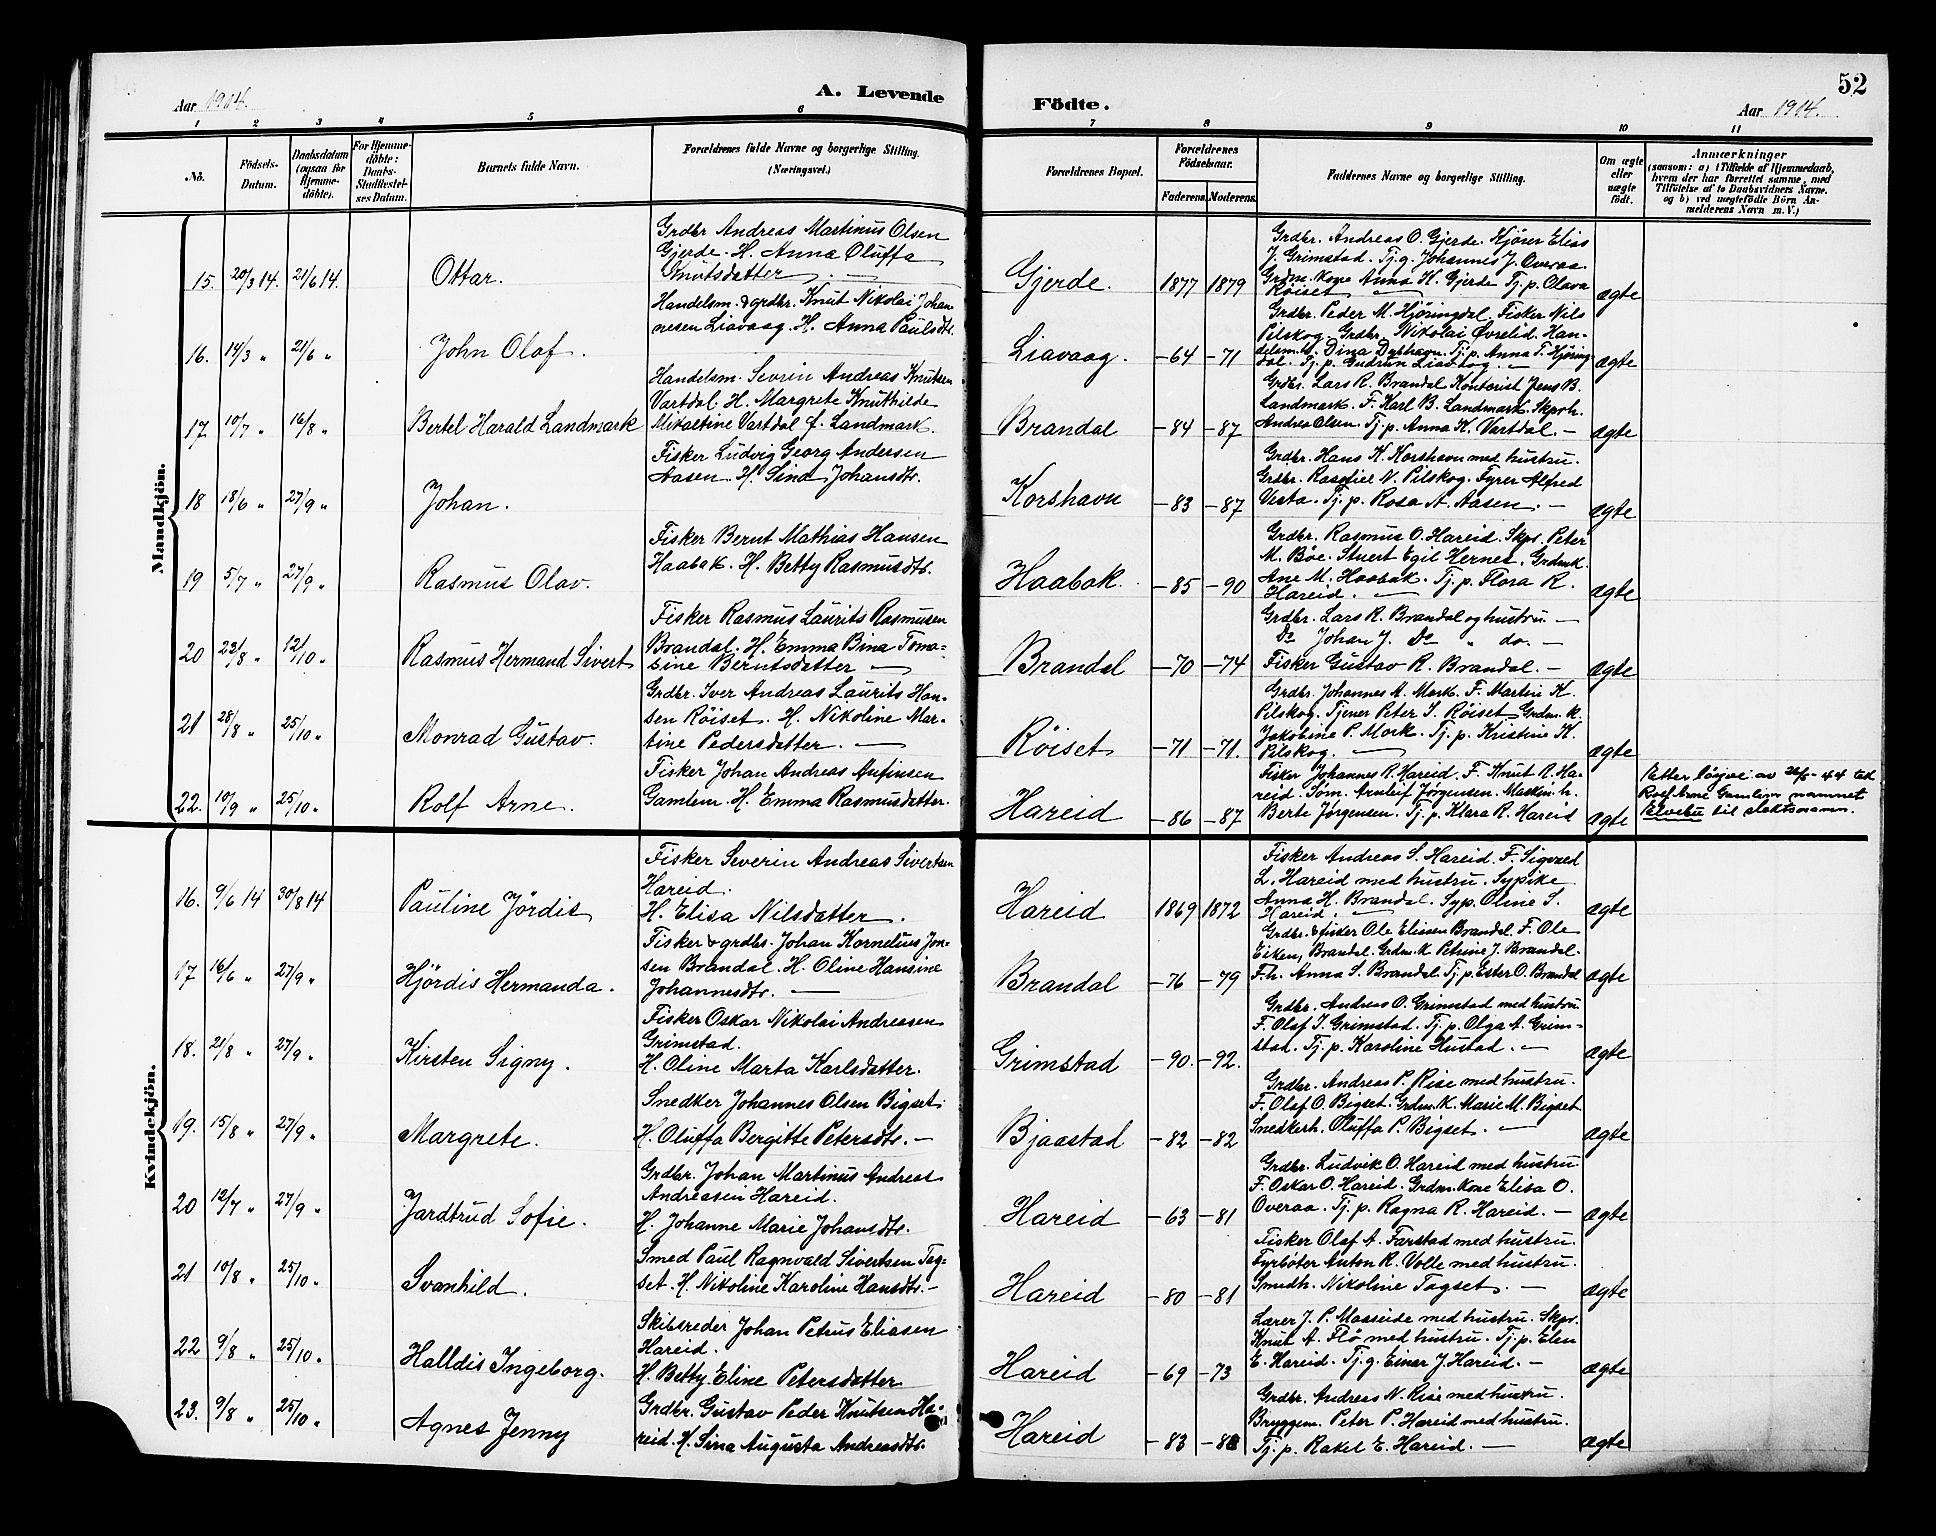 52
Aar 1914.
A. Levende
Födte.
Aar 1914.
1 2 3 4 5 6 7 8 9 10 11
No.
Födsels-Datum.
Daabsdatum (ogsaa for Hjemme-döbte).
For Hjemme-döbte: Daabs-Stadfestel-ses Datum.
Barnets fulde Navn.
Forældrenes fulde Navne og borgerlige Stilling. (Næringsvei.)
Forældrenes Bopæl.
Forældrenes Födselsaar.
Faderens. Moderens.
Faddernes Navne og borgerlige Stilling.
Om ægte eller uægte født.
Anmærkninger
(saasom: a) i Tilfælde af Hjemmedaab,
hvem der har forrettet samme, med
Tilföielse af to Daabsvidners Navne.
og b) ved uægtefödte Börn An-
melderens Navn m. V.)
Mandkjön.
15. 20/3 14. 21/6 14. Ottar.
Grdbr Andreas Martinus Olsen
Gjerde. H. Anna Oluffa
Knutsdatter. —
Gjerde. 1877 1879
Grdbr. Andreas O. Gjerde. Kjörer Elias
J. Grimstad. Tj. g. Johannes J. Overaa.
Grdm. kone Anna K. Gjerde Tj. p. Olava
Röiset —
ægte
16. 14/3 " 21/6 " John Olaf.
Handelsm. & grdbr. Knut Nikolai Johan-
nesen Liavaag. H. Anna Paulsdtr.
Liavaag. -64 -71
Grdbr. Peder M. Hjöringdal. Fisker Nils
Pilskog. Grdbr. Nikolai Øvrelid. Han-
delsm. h. Dina Dybhavn. Tj. p. Anna T. Hjöring-
dal. Tj. p. Gudrun Liadtog. —
ægte
17. 10/7 " 16/8 " Bertel Harald Landmark
Handelsm. Sevrin Andreas Knutsen
Vartdal. H. Margrete Knuthilde
Mikaeline Vartdal f. Landmark.
Brandal -84 -87
Grdbr. Lars R. Brandal Kontorist Jens B.
Landmark. F. Karl B. Landmark. Skprh.
Andrea Olsen. Tj. p. Anna K. Vartdal. —
ægte
18 18/6 " 27/9 " Johan.
Fisker Ludvig Georg Andersen
Aasen. H. Sina Johansdtr.
Korshavn -83 -87
Grdbr. Hans K. Korshavn med hustru.
Grdbr. Rasefiel N. Pilskog. Fyrer Alfred
Vista. Tj. p. Rosa A. Aasen. —
ægte
19 5/7 " 27/9 " Rasmus Olav.
Fisker Bernt Mathias Hansen
Haabak. H. Betty Rasmusdtr.
Haabak. -85 -90
Grdbr. Rasmus O. Hareid. Skpr. Peter
M. Böe. Stuert Egil Hernes. Grdm. k.
Ane M. Haabak. Tj. p. Flora R.
Hareid. —
ægte
20 22/8 " 12/10 " Rasmus Hermand Sivert
Fisker Rasmus Laurits Rasmusen
Brandal. H. Emma Bina Toma-
sine Berntsdatter —
Brandal -70 -74
Grdbr. Lars R. Brandal og hustru —
Do Johan J. Do " do. —
Fisker Gustav R. Brandal. —
ægte
21 28/8 " 25/10 " Monrad Gustav.
Grdbr. Iver Andreas Laurits Han-
sen Röiset. H. Nikoline Mar-
tine Pedersdatter. —
Röiset -71 -71.
Grdbr. Johannes A. Mork. F. Martin K.
Pilskog. Tjener Peter I. Röiset Grdm. k.
Jakobine P. Mork. Tj. p. Kristine K.
Pilskog. —
ægte
22. 10/9 " 25/10 " Rolf Arne.
Fisker Johan Andreas Anfinsen
Gamlem. H. Emma Rasmusdatter.
Hareid -86 -87
Fisker Johannes R. Hareid. F. Knut R. Ha-
reid. Söm. Arnleif Jørgensen. Maskin. h.
Berte Jørgensen. Tj. p. Klara R. Hareid
ægte
Etter löyve av 26/5-44 tek
Rolf Arne Gamlem namnet
Elvebu til slektsnamn.
Kvindekjön.
16. 9/6 14 30/8 14 Pauline Jördis
Fisker Severin Andreas Sivertsen
Hareid.
H. Elisa Nilsdatter.
Hareid 1869 1872
Fisker Andreas S. Hareid. F. Sigvald
L. Hareid med hustru. Sypike
Anna H. Brandal. Syp. Oline S.
Hareid. —
ægte
17 16/6 " 27/9 " Hjördis Hermanda.
Fisker & grdbr. Johan Kornelius Jon-
sen Brandal. H. Oline Hansine
Johannesdtr. —
Brandal -76 -79
Grdbr. & fisker Ole Eliasen Brandal. F. Ole
Eiken, Brandal. Grdm. k. Petrine J. Brandal.
F. h. Anna S. Brandal. Tj. p. Ester O. Brandal
ægte
18. 21/8 " 27/9 " Kirsten Signy.
Fisker Oskar Nikolai Andreasen
Grimstad.
H. Oline Marta Karlsdatter.
Grimstad -90. -92.
Grdbr. Andreas O. Grimstad med hustru
F. Olaf I. Grimstad. Tj. p. Olga A. Grim-
stad. Tj. p. Karoline Hustad. —
ægte
19. 15/8 " 27/9 " Margrete.
Snedker Johannes Olsen Bigset.
H. Oluffa Bergitte Petersdtr. —
Bjaastad -82 -82
Grdbr. Andreas P. Rise med hustru.
F. Olaf O. Bigset. Grdm. K. Marie M. Bigset.
Snedkerh. Oluffa P. Bigset. —
ægte
20 12/7 " 27/9 " Jardtrud Sofie.
Grdbr. Johan Martinus Andreas
Andreasen Hareid.
H. Johanne Marie Johansdtr.
Hareid -63 -81
Grdbr. Ludvik O. Hareid med hustru
F. Oskar O. Hareid. Grdm. Kone Elisa O.
Overaa. Tj. p. Ragna R. Hareid. —
ægte
21 10/8 " 25/10 " Svanhild.
Smed Paul Ragnvald Sivertsen Tag-
set. H. Nikoline Karoline Hansdtr. —
Hareid -80 -81
Fisker Olaf A. Farstad med hustru.
Fyrböter Anton R. Volle med hustru.
Smedh. Nikoline Tagset. —
ægte
22 9/8 " 25/10 " Halldis Ingeborg.
Skibsreder Johan Petrus Eliasen
Hareid.
H. Betty Eline Petersdatter
Hareid -69 -73
Lærer J. P. Masseide med hustru. Skpr.
Knut A. Flö med hustru. Tj. p. Elen
E. Hareid. Tj. g. Einar J. Hareid. —
ægte
23. 9/8 " 25/10 " Agnes Jenny
Grdbr. Gustav Peder Knutsen Ha-
reid. H. Sina Augusta Andreasdtr.
Hareid -83
Grdbr. Andreas N. Rise med hustru.
Bryggem. Peter P. Hareid med hustru.
Tj. p. Rakel E. Hareid. —
ægte